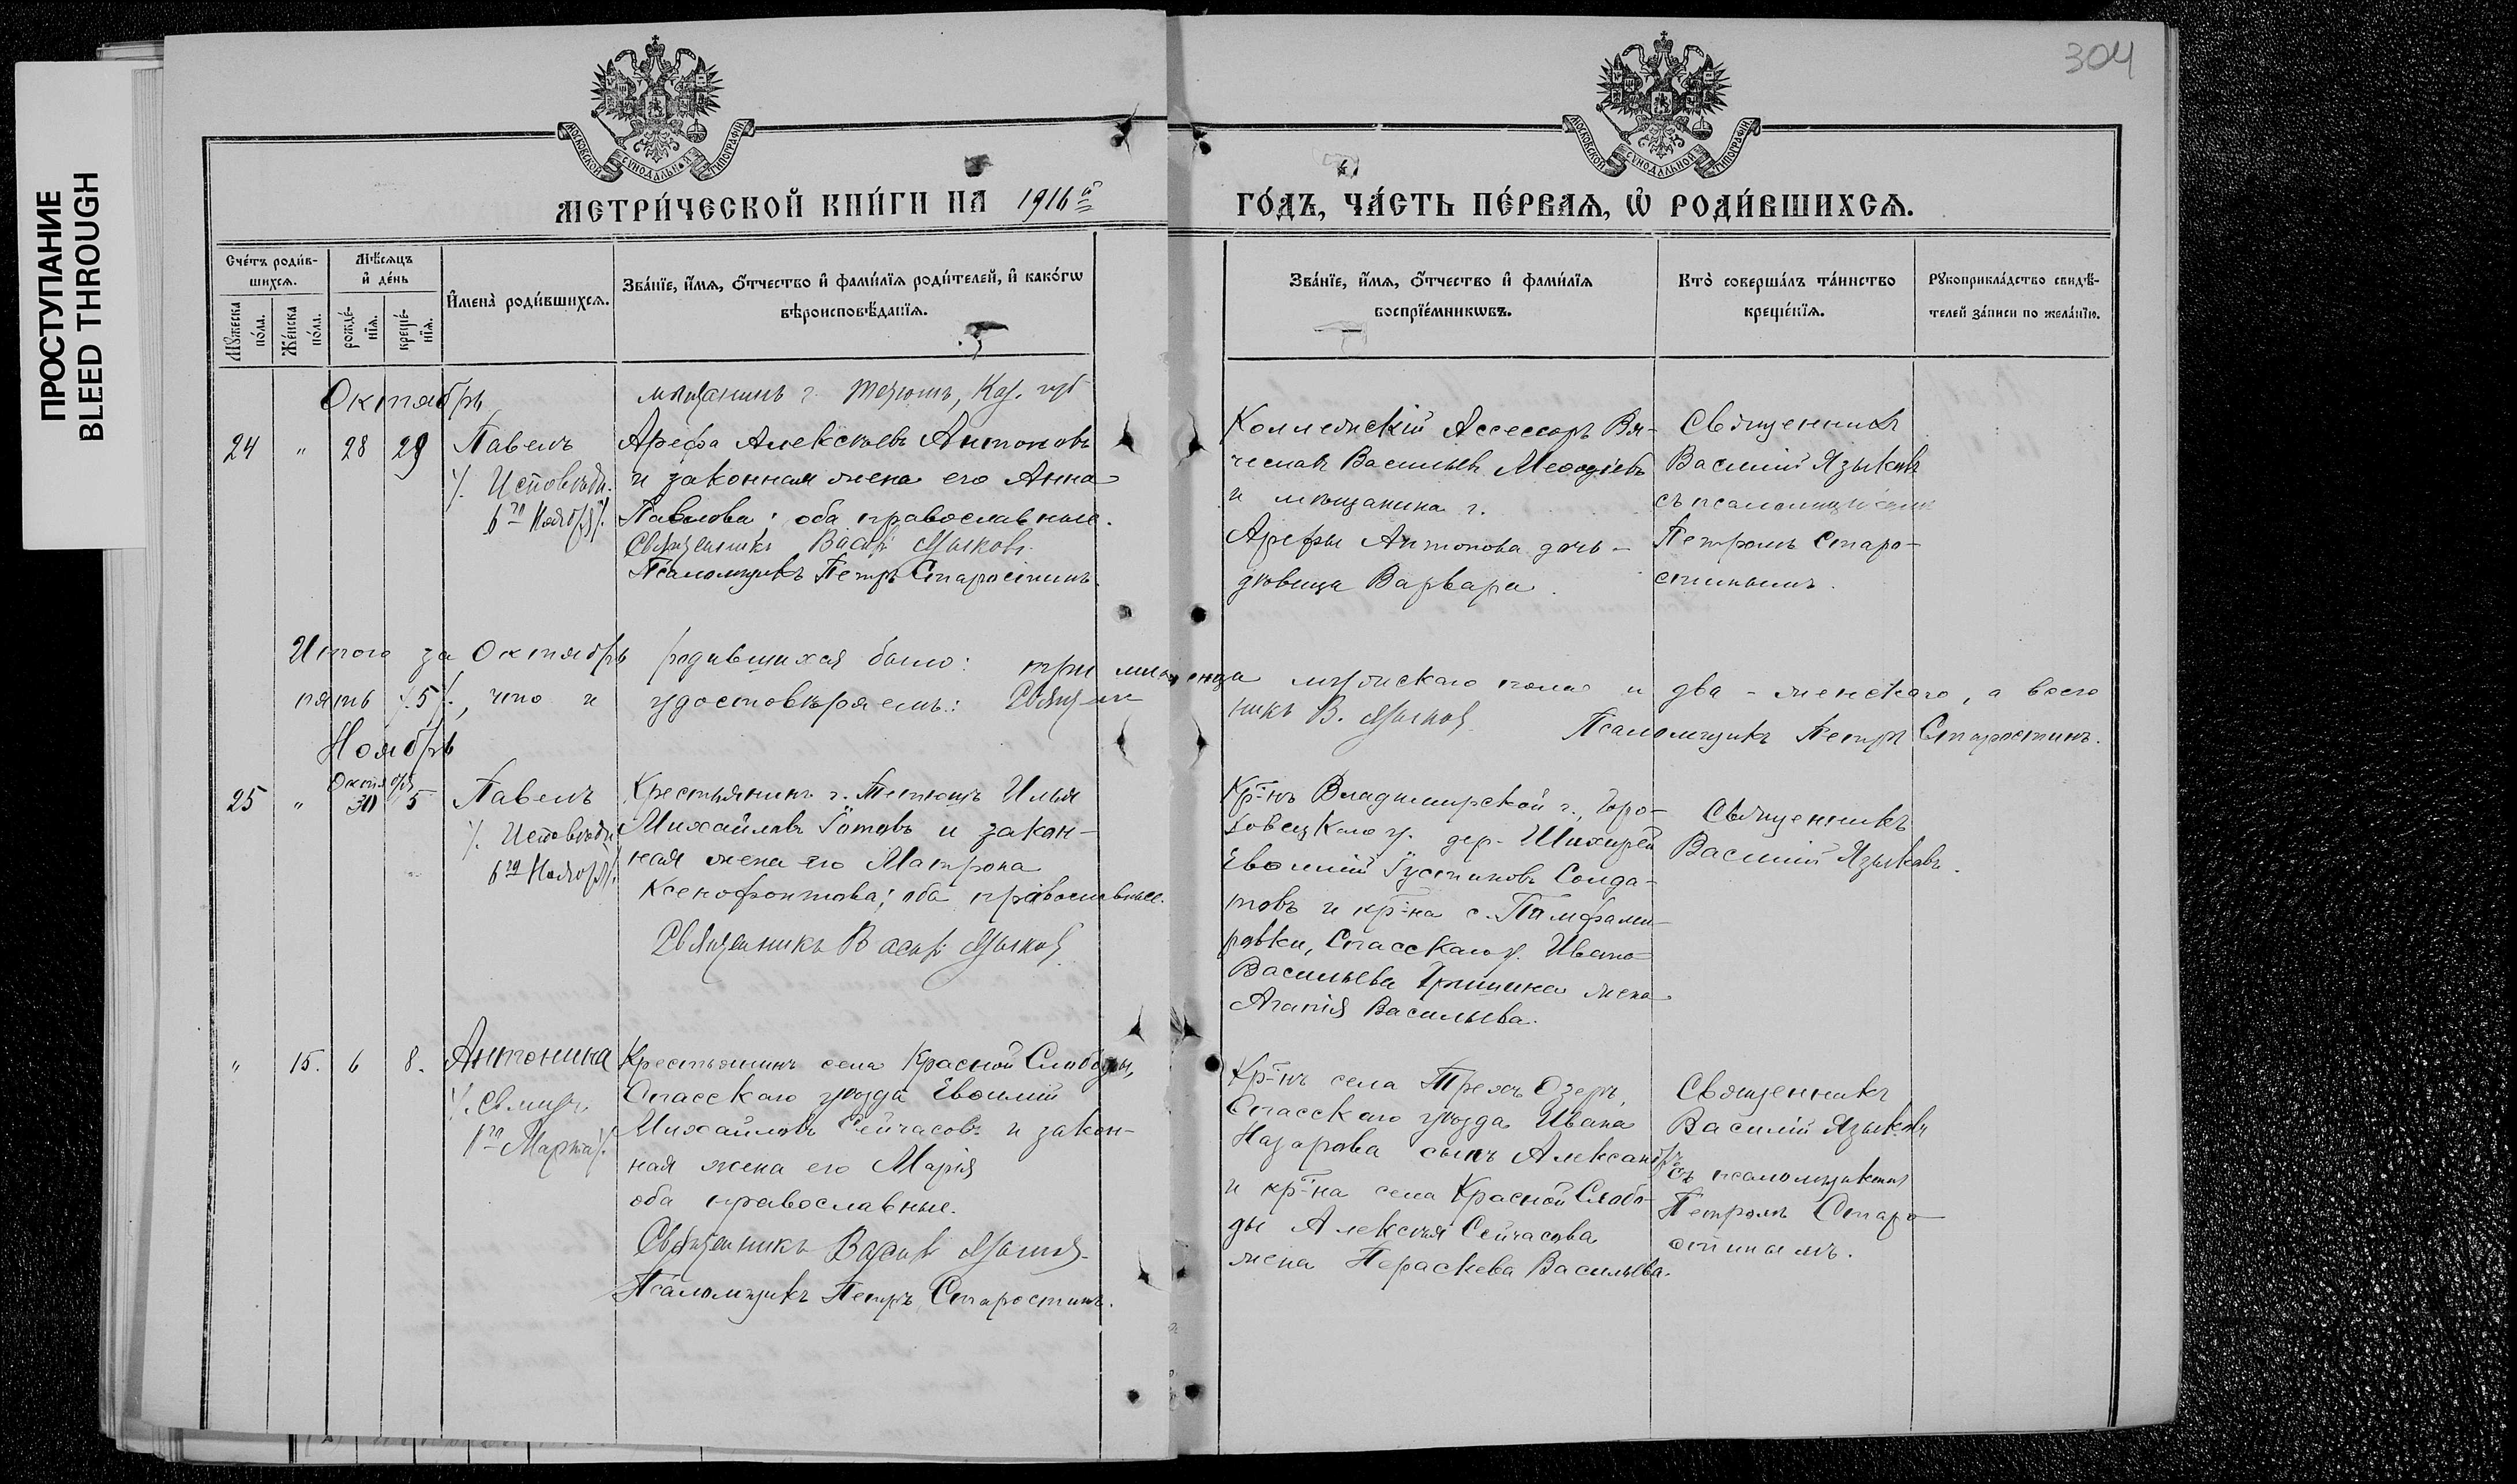 ПРОСТУПАНИЕ
BLEED THROUGH
304
МОСКОВСКОЙ СѴНОДАЛЬНОЙ ТИПОГРАФІИ
МОСКОВСКОЙ СѴНОДАЛЬНОЙ ТИПОГРАФІИ
МЕТРИ́ЧЕСКОЙ КНИ́ГИ НА 1916й
ГО́ДЪ, ЧА́СТЬ ПЕ́РВАЯ, Ѡ҆ РОДИ́ВШИХСЯ.
Сче́тъ роди́в-
шихся.
Мѣ́сяцъ
и҆ де́нь
Мꙋ́жеска
по́ла.
Же́нска
по́ла.
рожде́-
нїя.
креще́-
нїя.
И҆мена̀ роди́вшихся.
Зва́нїе, и҆́мя, ѻ҆́тчество и҆ фами́лїя роди́телей, и҆ како́гѡ
вѣроисповѣ́данїя.
Зва́нїе, и҆́мя, ѻ҆́тчество и҆ фами́лїя
воспрїе́мникѡвъ.
Кто̀ соверша́лъ та́инство
креще́нїя.
Рꙋкоприкла́дство свидѣ́-
телей за́писи по жела́нїю.
Октябрь
мѣщанинъ г. Тетюшъ, Каз. губ
24 " 28 29 Павелъ
/. Исповѣдн.
6го Ноября/.
Арефа Алексѣевъ Антоновъ
и законная жена его Анна
Павлова; оба православные.
Священникъ Василій Языковъ.
Псаломщикъ Петръ Старостинъ.
Коллежскій Ассессоръ Вя-
чеславъ Васильевъ Меѳодіевъ
и мѣщанина г.
Арефы Антонова дочь-
дѣвица Варвара.
Священникъ
Василій Языковъ
съ псаломщикомъ
Петромъ Старо-
стинымъ.
Итого за Октябрь родившихся было: три младенца мужскаго пола и два - женскаго, а всего
пять /.5/., что и удостовѣряемъ: Священ-
никъ В. Языковъ Псаломщикъ Петръ Старостинъ.
Ноябрь
Октября
25 " 30 5 Павелъ
/. Исповѣдн.
6го Ноября/.
Крестьянинъ г. Тетюшъ Илья
Михайловъ Готовъ и закон-
ная жена его Матрона
Ксенофонтова; оба православные.
Священникъ Василій Языковъ
Кр-нъ Владимирской г., Горо-
ховецкаго у. дер.
Евѳимій Густиновъ Солда-
товъ и кр-на с.
ровки, Спасскаго у. Ивана
Васильева Гришина жена
Агапія Васильева.
Священникъ
Василій Языковъ.
" 15. 6 8. Антонина
/. Св. муч.
1го Марта/.
Крестьянинъ села Красной Слободы,
Спасскаго уѣзда Евѳимій
Михайловъ Сейчасовъ и закон-
ная жена его Марія
оба православные.
Священникъ Василій Языковъ.
Псаломщикъ Петръ Старостинъ.
Кр-нъ села Трехъ Озеръ,
Спасскаго уѣзда Ивана
Назарова сынъ Александръ
и кр-на села Красной Слобо-
ды Алексѣя Сейчасова
жена Параскева Васильева.
Священникъ
Василій Языковъ
съ псаломщикомъ
Петромъ Старо-
стинымъ.